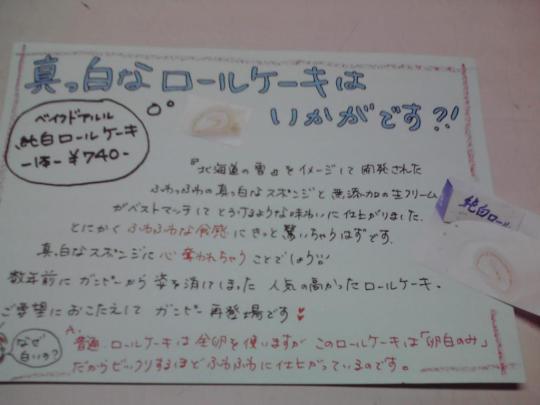 真っ白なロールケーキは
いかがです?!
ベイクドアルル
純白ロールケーキ
一本 ¥740-
『北海道の雪』をイメージして開発された
ふわっふわの真っ白なスポンジと無添加の生クリーム
がベストマッチしてとろけるような味わいに仕上がりました。
とにかくふわふわな食感にきっと驚いちゃうはずです。
真っ白なスポンジに心奪われちゃうことでしょう!!
数年前にガンピーから姿を消してしまった人気の高かったロールケーキ。
ご要望におこたえしてガンピー再登場です♥
なぜ白いの?
A.
普通、ロールケーキは全卵を使いますがこのロールケーキは「卵白のみ」
だからビックリするほどふわふわに仕上がっているのです。
純白ロール